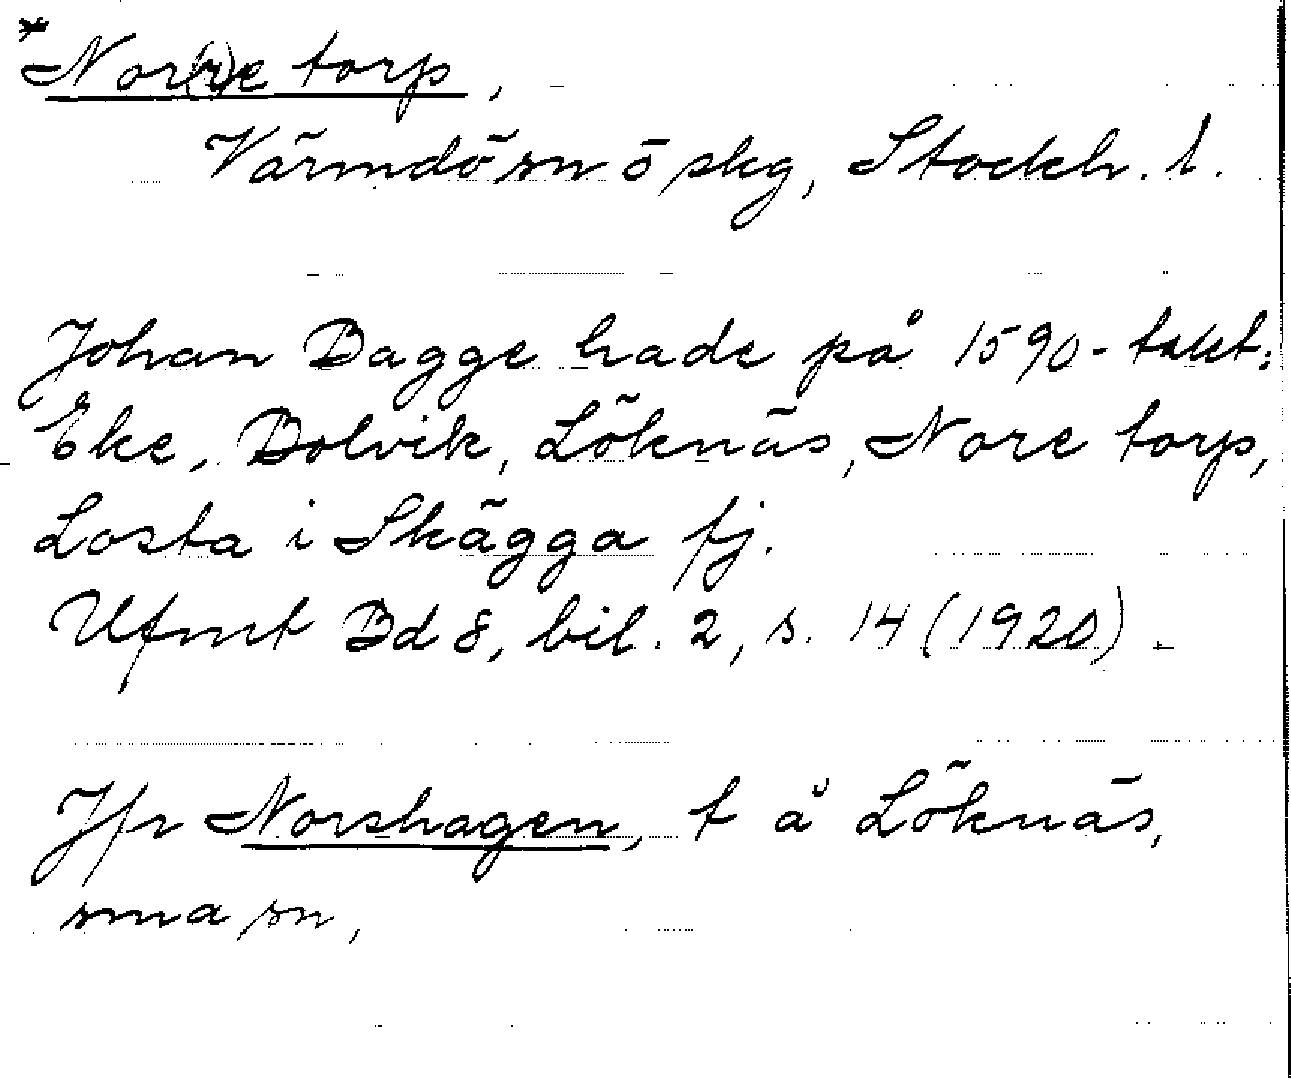 *Nor(r)e torp,
Värmdö sn ö skg, Stockh. l.
Johan Bagge hade på 1590-talet:
Eke, Bolvik, Löknäs, Nore torp,
Losta i Skägga fj.
Ufmt Bd 8, bil. 2, s. 14 (1920).
Jfr Norshagen, t å Löknäs,
sma sn,